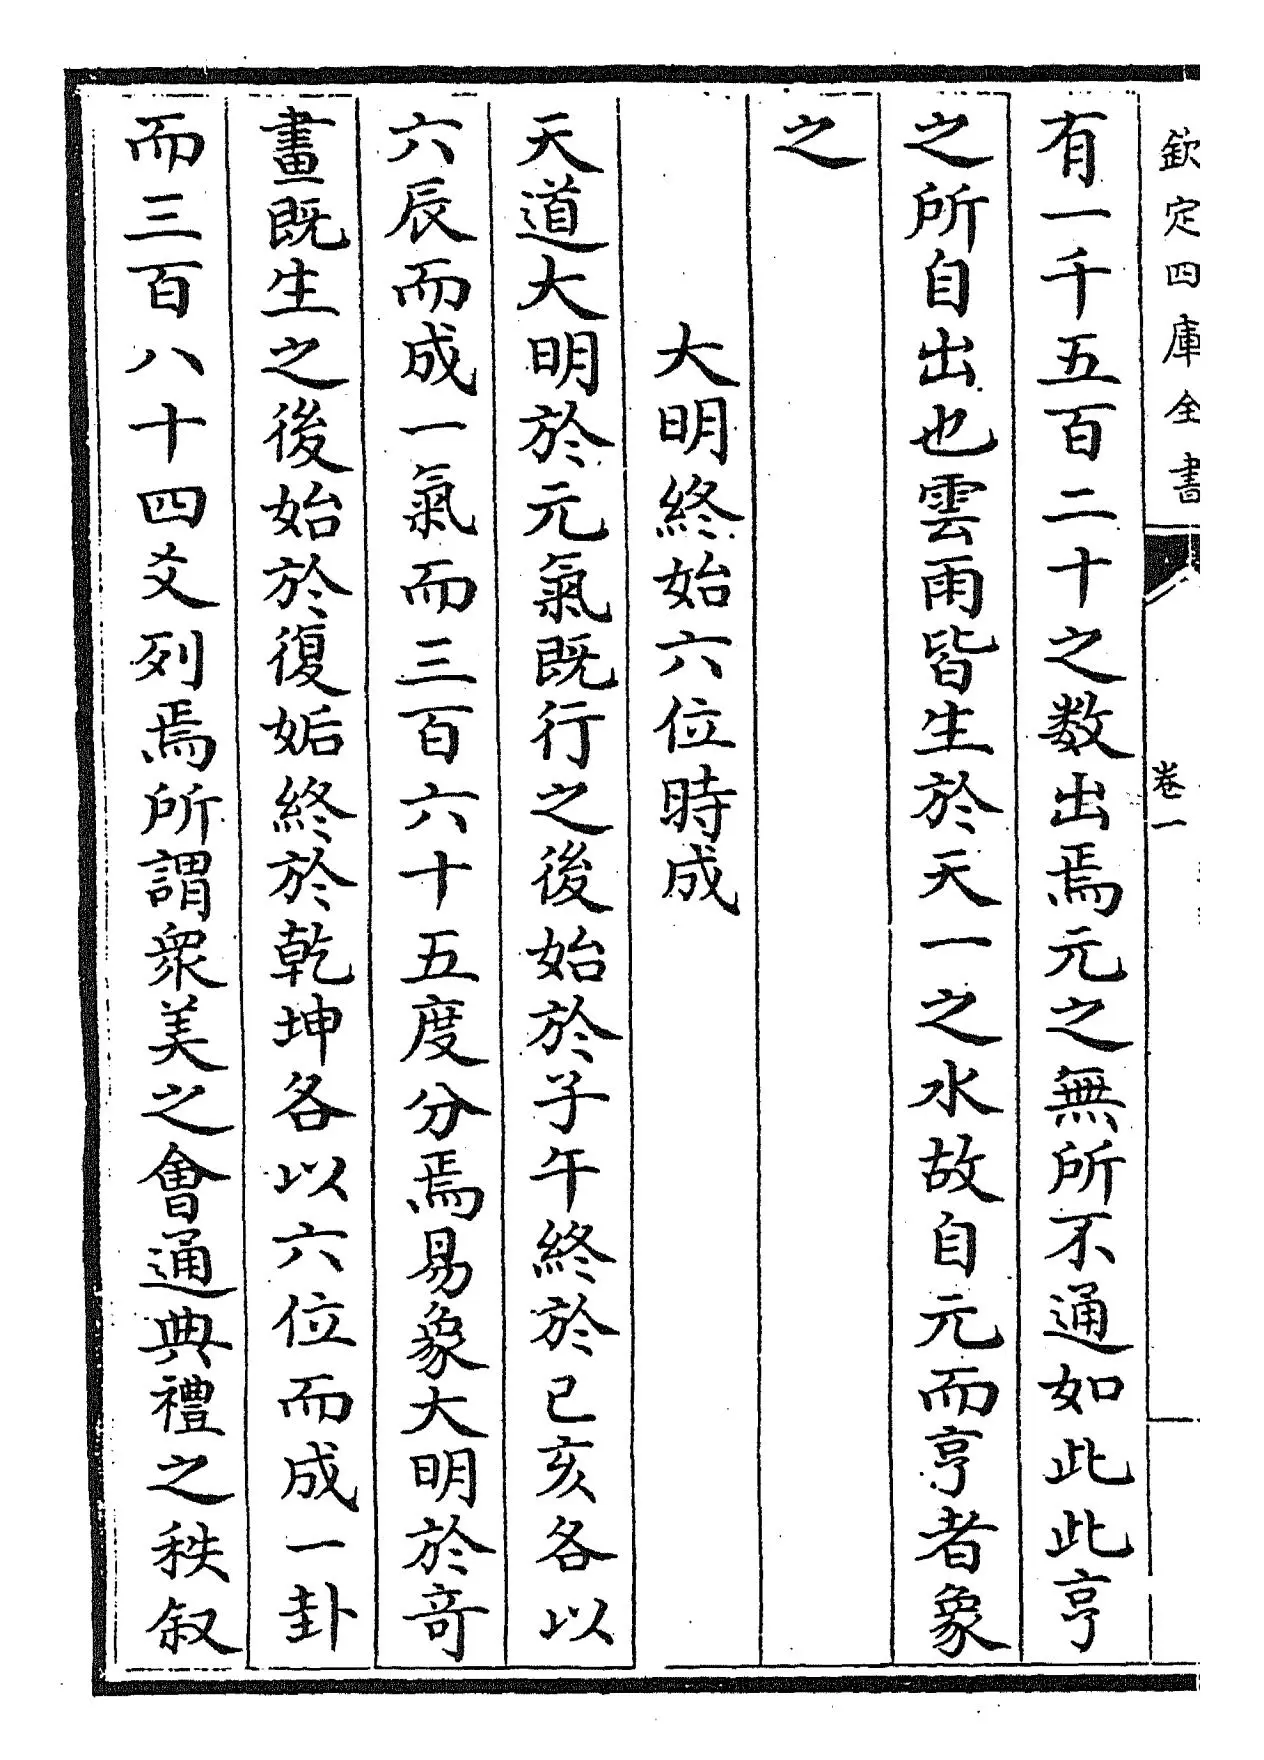 欽定四庫全書
卷一
有一千五百二十之数出焉元之無所不通如此此亨
之所自出也雲雨皆生於天一之水故自元而亨者象
之
大明終始六位時成
天道大明於元氣既行之後始於子午終於已亥各以
六辰而成一氣而三百六十五度分焉易象大明於竒
畫既生之後始於復姤終於乾坤各以六位而成一卦
而三百八十四爻列焉所謂衆美之會通典禮之秩叙